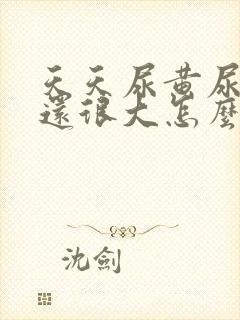 天天尿黄尿
還很大怎麼
沈劍